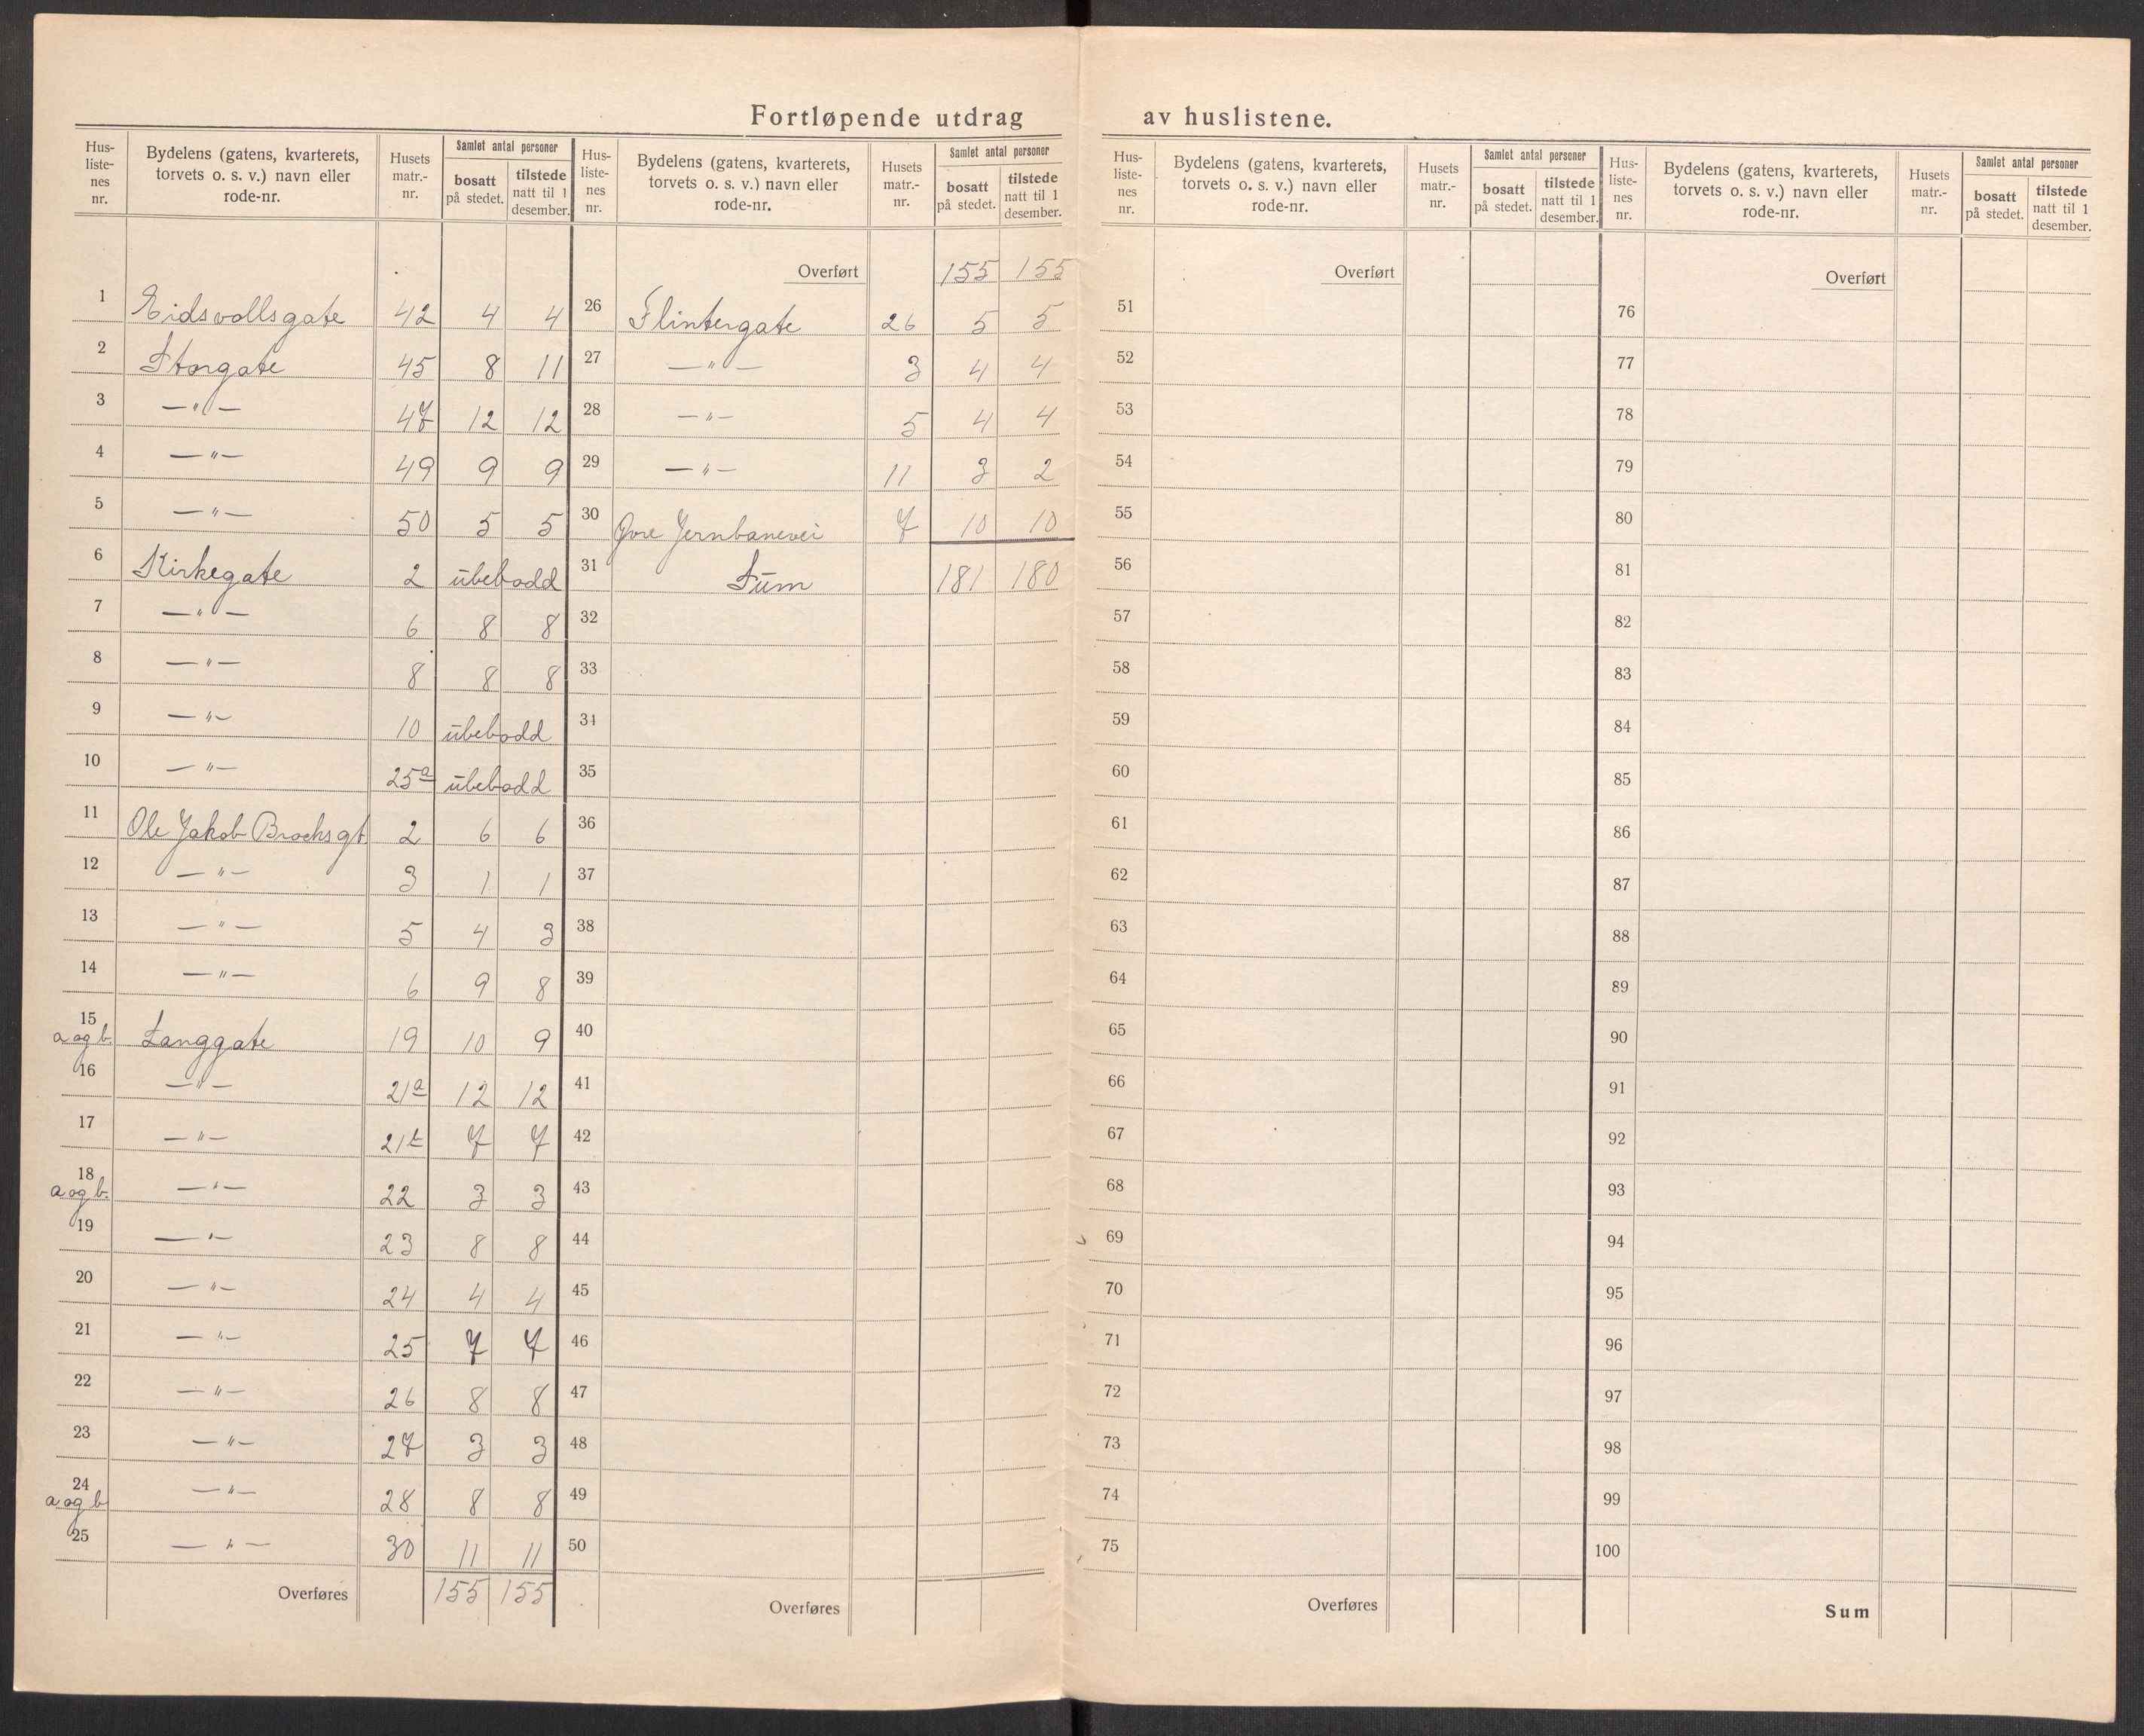 Fortløpende utdrag av huslistene.
Hus-liste-nes nr. | Bydelens (gatens, kvarterets, torvets o. s. v.) navn eller rode-nr. | Husets matr.-nr. | Samlet antal personer bosatt på stedet. | tilstede natt til 1 desember.
1 Eidsvollsgate 42 4 4
2 Storgate 45 8 11
3 —"— 47 12 12
4 —"— 49 9 9
5 —"— 50 5 5
6 Kirkegate 2 ubebodd
7 —"— 6 8 8
8 —"— 8 8 8
9 —"— 10 ubebodd
10 —"— 25a ubebodd
11 Ole Jakob Brochsgt. 2 6 6
12 —"— 3 1 1
13 —"— 5 4 3
14 —"— 6 9 8
15 a og b. Langgate 19 10 9
16 —"— 21a 12 12
17 —"— 21b 7 7
18 a og b. —"— 22 3 3
19 —"— 23 8 8
20 —"— 24 4 4
21 —"— 25 7 7
22 —"— 26 8 8
23 —"— 27 3 3
24 a og b —"— 28 8 8
25 —"— 30 11 11
Overføres 155 155
Hus-liste-nes nr. | Bydelens (gatens, kvarterets, torvets o. s. v.) navn eller rode-nr. | Husets matr.-nr. | Samlet antal personer bosatt på stedet. | tilstede natt til 1 desember.
Overført 155 155
26 Flintergate 26 5 5
27 —"— 3 4 4
28 —"— 5 4 4
29 —"— 11 3 2
30 Øvre Jernbanevei 7 10 10
31 Sum 181 180
32
33
34
35
36
37
38
39
40
41
42
43
44
45
46
47
48
49
50
Overføres
Hus-liste-nes nr. | Bydelens (gatens, kvarterets, torvets o. s. v.) navn eller rode-nr. | Husets matr.-nr. | Samlet antal personer bosatt på stedet. | tilstede natt til 1 desember.
Overført
51
52
53
54
55
56
57
58
59
60
61
62
63
64
65
66
67
68
69
70
71
72
73
74
75
Overføres
Hus-liste-nes nr. | Bydelens (gatens, kvarterets, torvets o. s. v.) navn eller rode-nr. | Husets matr.-nr. | Samlet antal personer bosatt på stedet. | tilstede natt til 1 desember.
Overført
76
77
78
79
80
81
82
83
84
85
86
87
88
89
90
91
92
93
94
95
96
97
98
99
100
Sum